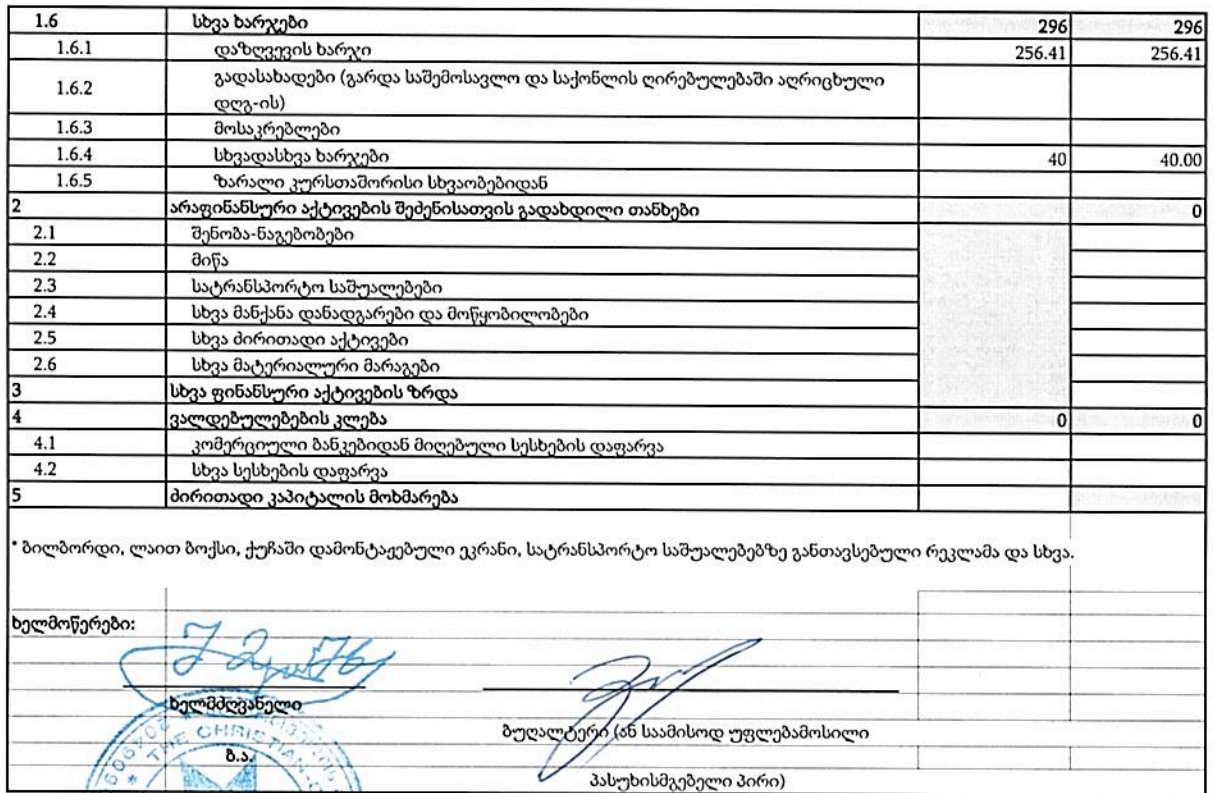 1.6 სხვა ხარჯები 296 296
1.6.1 დაზღვევის ხარჯი 256.41 256.41
1.6.2 გადასახადები (გარდა საშემოსავლო და საქონლის ღირებულებაში აღრიცხული
დღგ-ის)
1.6.3 მოსაკრებლები
1.6.4 სხვადასხვა ხარჯები 40 40.00
1.6.5 ზარალი კურსთაშორისი სხვაობებიდან
2 არაფინანსური აქტივების შეძენისათვის გადახდილი თანხები 0
2.1 შენობა-ნაგებობები
2.2 მიწა
2.3 სატრანსპორტო საშუალებები
2.4 სხვა მანქანა დანადგარები და მოწყობილობები
2.5 სხვა ძირითადი აქტივები
2.6 სხვა მატერიალური მარაგები
3 სხვა ფინანსური აქტივების ზრდა
4 ვალდებულებების კლება 0 0
4.1 კომერციული ბანკებიდან მიღებული სესხების დაფარვა
4.2 სხვა სესხების დაფარვა
5 ძირითადი კაპიტალის მოხმარება
* ბილბორდი, ლაით ბოქსი, ქუჩაში დამონტაჟებული ეკრანი, სატრანსპორტო საშუალებებზე განთავსებული რეკლამა და სხვა.
ხელმოწერები:
ხელმძღვანელი
ბუღალტერი (ან საამისოდ უფლებამოსილი
THE CHRISTIAN-
ბ.ა.
პასუხისმგებელი პირი)